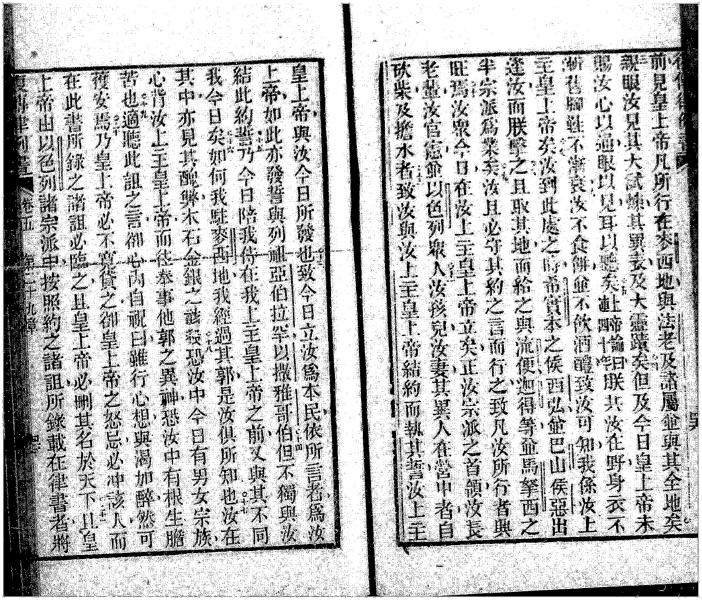 前見皇上帝凡所行在麥西地與法老及諸屬並與其全地矣
親眼汝見其大試煉其異表及大靈蹟矣但及今日皇上帝未
賜汝心以通眼以見耳以聽矣上帝諭曰朕共汝在野身衣不
漸舊腳鞋不漸衰汝不食餅並不飲酒醴致汝可知我係汝上
主皇上帝矣汝到此處之時希實本之侯西弘並巴山侯惡出
逢汝而朕擊之且取其地而給之與流便迦得等並馬拏西之
半宗派爲業矣汝且必守其約之言而行之致凡汝所行者與
旺焉汝衆今日在汝上主皇上帝立矣正汝宗派之首領汝長
老輩汝官憲並以色列衆人汝孩兒汝妻其異人在營中者自
砍柴及擔水者致汝與汝上主皇上帝結約而執其誓汝上主
皇上帝與汝今日所發也致今日立汝爲本民依所言者爲汝
上帝如此亦發誓與列祖亞伯拉罕以撒雅哥伯但不獨與汝
結此約誓乃今日陪我侍在我上主皇上帝之前又與其不同
我今日矣如何我駐麥西地我經過其郭是汝俱所知也汝在
其中亦見其醜弊木石金銀之該殺恐汝中今日有男女宗族
心背汝上主皇上帝而往奉事他郭之異神恐汝中有根生膽
苦也適聽此詛之言卻心內自祝曰雖行心想與渴加醉然可
獲安焉乃皇上帝必不寬貸之卻皇上帝之怒忌必冲該人而
在此書所錄之諸詛必臨之且皇上帝必刪其名於天下且皇
上帝由以色列諸宗派中按照約之諸詛所錄載在律書者將